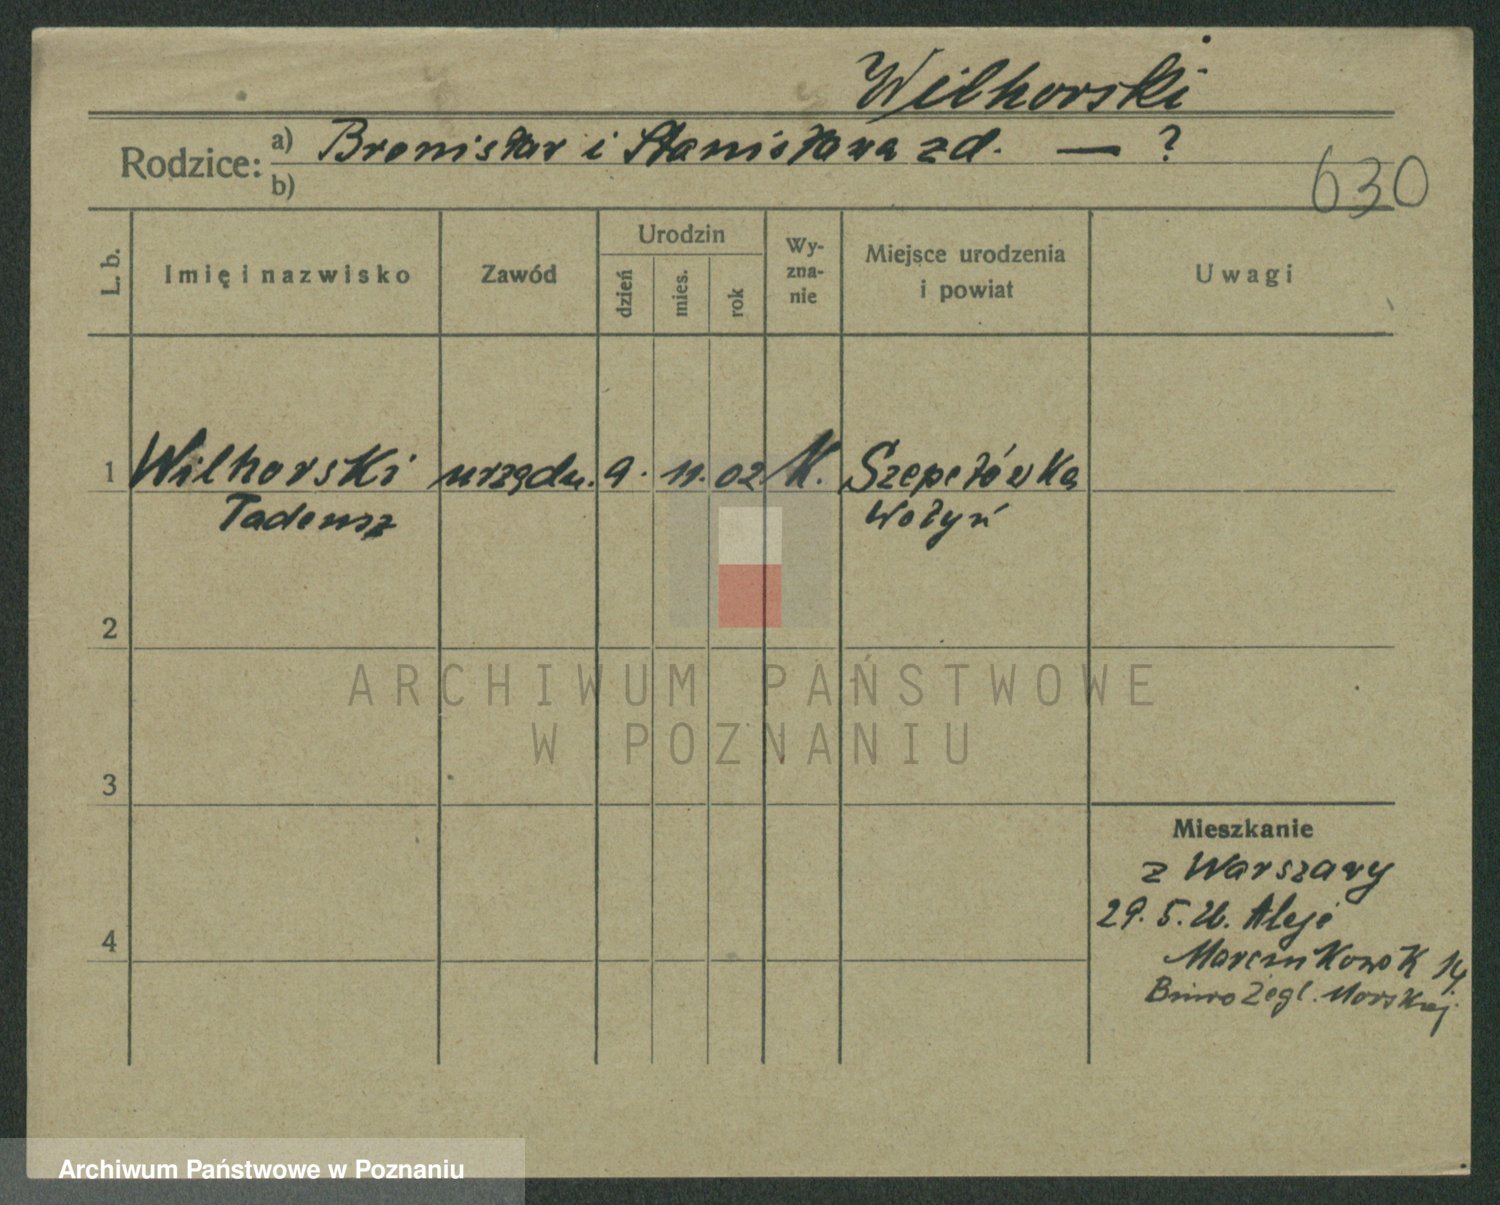 Wilhorski
Rodzice: a) Bronisław i Stanisława zd. — ?
b)
630
L. b.
Imię i nazwisko
Zawód
Urodzin
dzień
mies.
rok
Wy-
zna-
nie
Miejsce urodzenia
i powiat
Uwagi
1 Wilhorski urzędn. 9. 11. 02 K. Szepetówka
Tadeusz Wołyń
2
ARCHIWUM PAŃSTWOWE
W POZNANIU
3
Mieszkanie
z Warszawy
29. 5. 26. Aleje
4
Marcinkowsk 14
Biuro Żegl. Morskiej
Archiwum Państwowe w Poznaniu